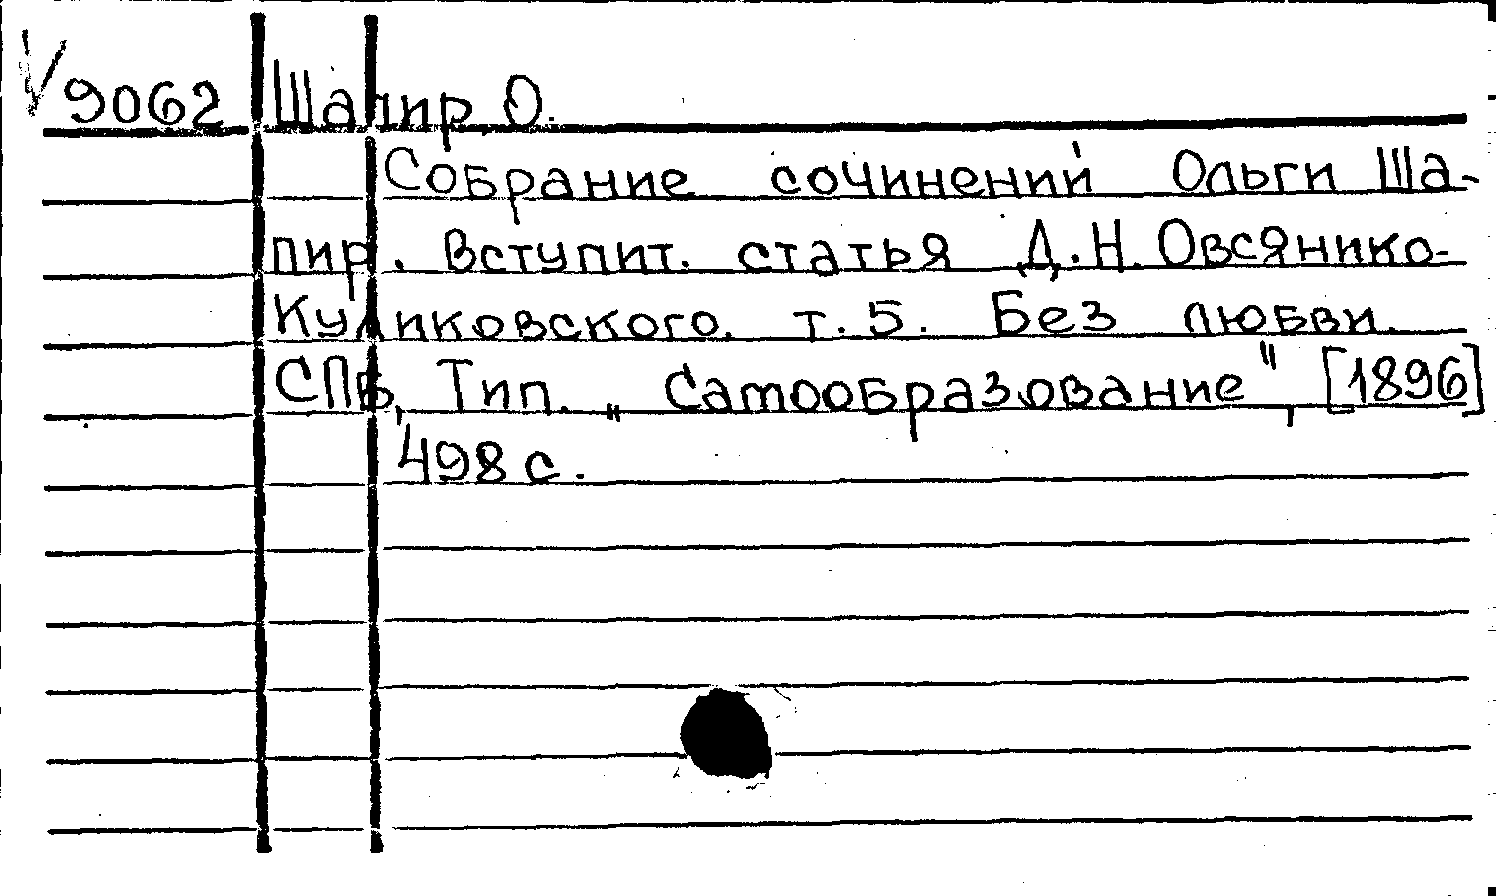 V 9062 Шапир О.
Собрание сочинений Ольги Ша-
пир. Вступит. статья Д.Н. Овсянико-
Куликовского. т.5. Без любви.
СПв, Тип. „Самообразование", [1896]
498 с.